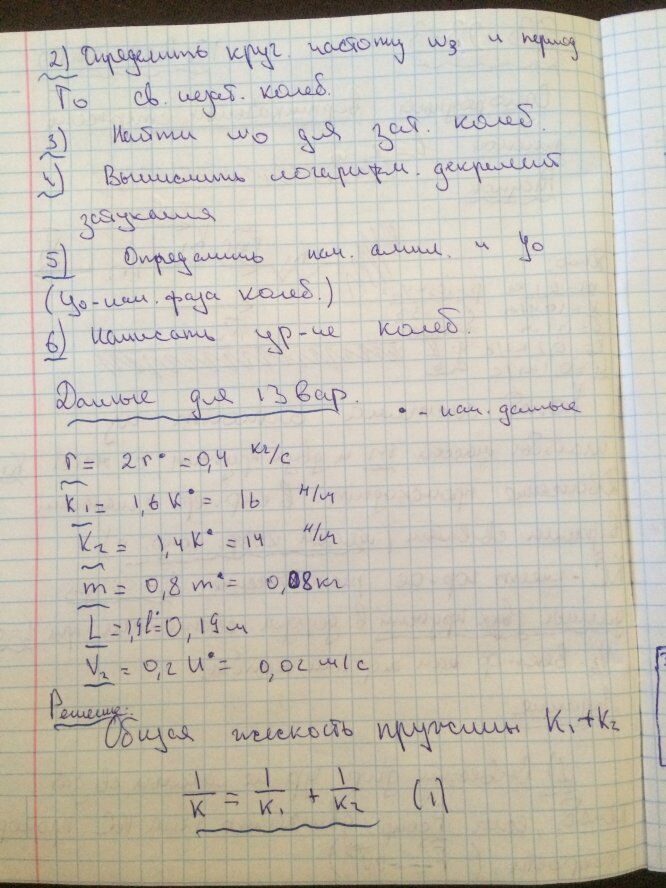 2) Определить круг. частоту ω3 и период
T0 св. незат. колеб.
3) Найти ω0 для зат. колеб.
4) Вычислить логарифм. декремент
затухания
5) Определить нач. ампл. и φ0
(φ0-нач. фаза колеб.)
6) Написать ур-ие колеб.
Данные для 13 вар.
• - нач. данные
r = 2r• = 0,4 кг/с
K1 = 1,6K• = 16 н/м
K2 = 1,4K• = 14 н/м
m = 0,8m• = 0,08кг
L = 1,9l• = 0,19м
V2 = 0,2U• = 0,02 м/с
Решение:
Общая жескость пружин K1+K2
1/K = 1/K1 + 1/K2 (1)